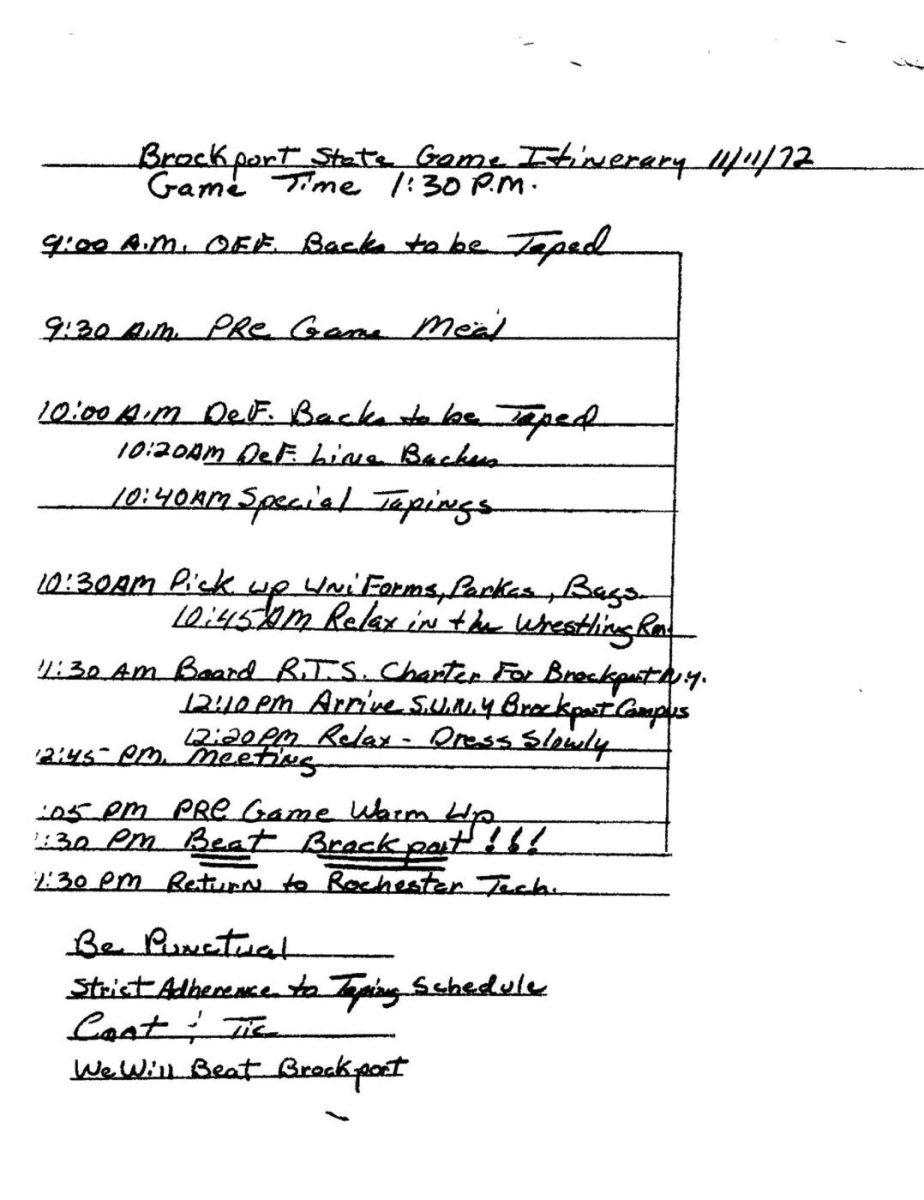 Brockport State Game Itinerary 11/11/72
Game Time 1:30 P.M.
9:00 A.M. OFF. Backs to be Taped
9:30 A.M. PRe Game Meal
10:00 A.M DeF. Backs to be Taped
10:20AM DeF. Line Backers
10:40AM Special Tapings
10:30AM Pick up UniForms, Parkas, Bags.
10:45AM Relax in the Wrestling Rm.
11:30 Am Board R.T.S. Charter For Brockport N.Y.
12:10 pm Arrive S.U.N.Y Brockport Campus
12:20 pm. Relax - Dress Slowly
2:45 pm. Meeting
:05 pm PRe Game Warm Up
:30 Pm Beat Brockport !!!
:30 pm Return to Rochester Tech.
Be Punctual
Strict Adherence to Taping Schedule
Coat & Tie
We Will Beat Brockport